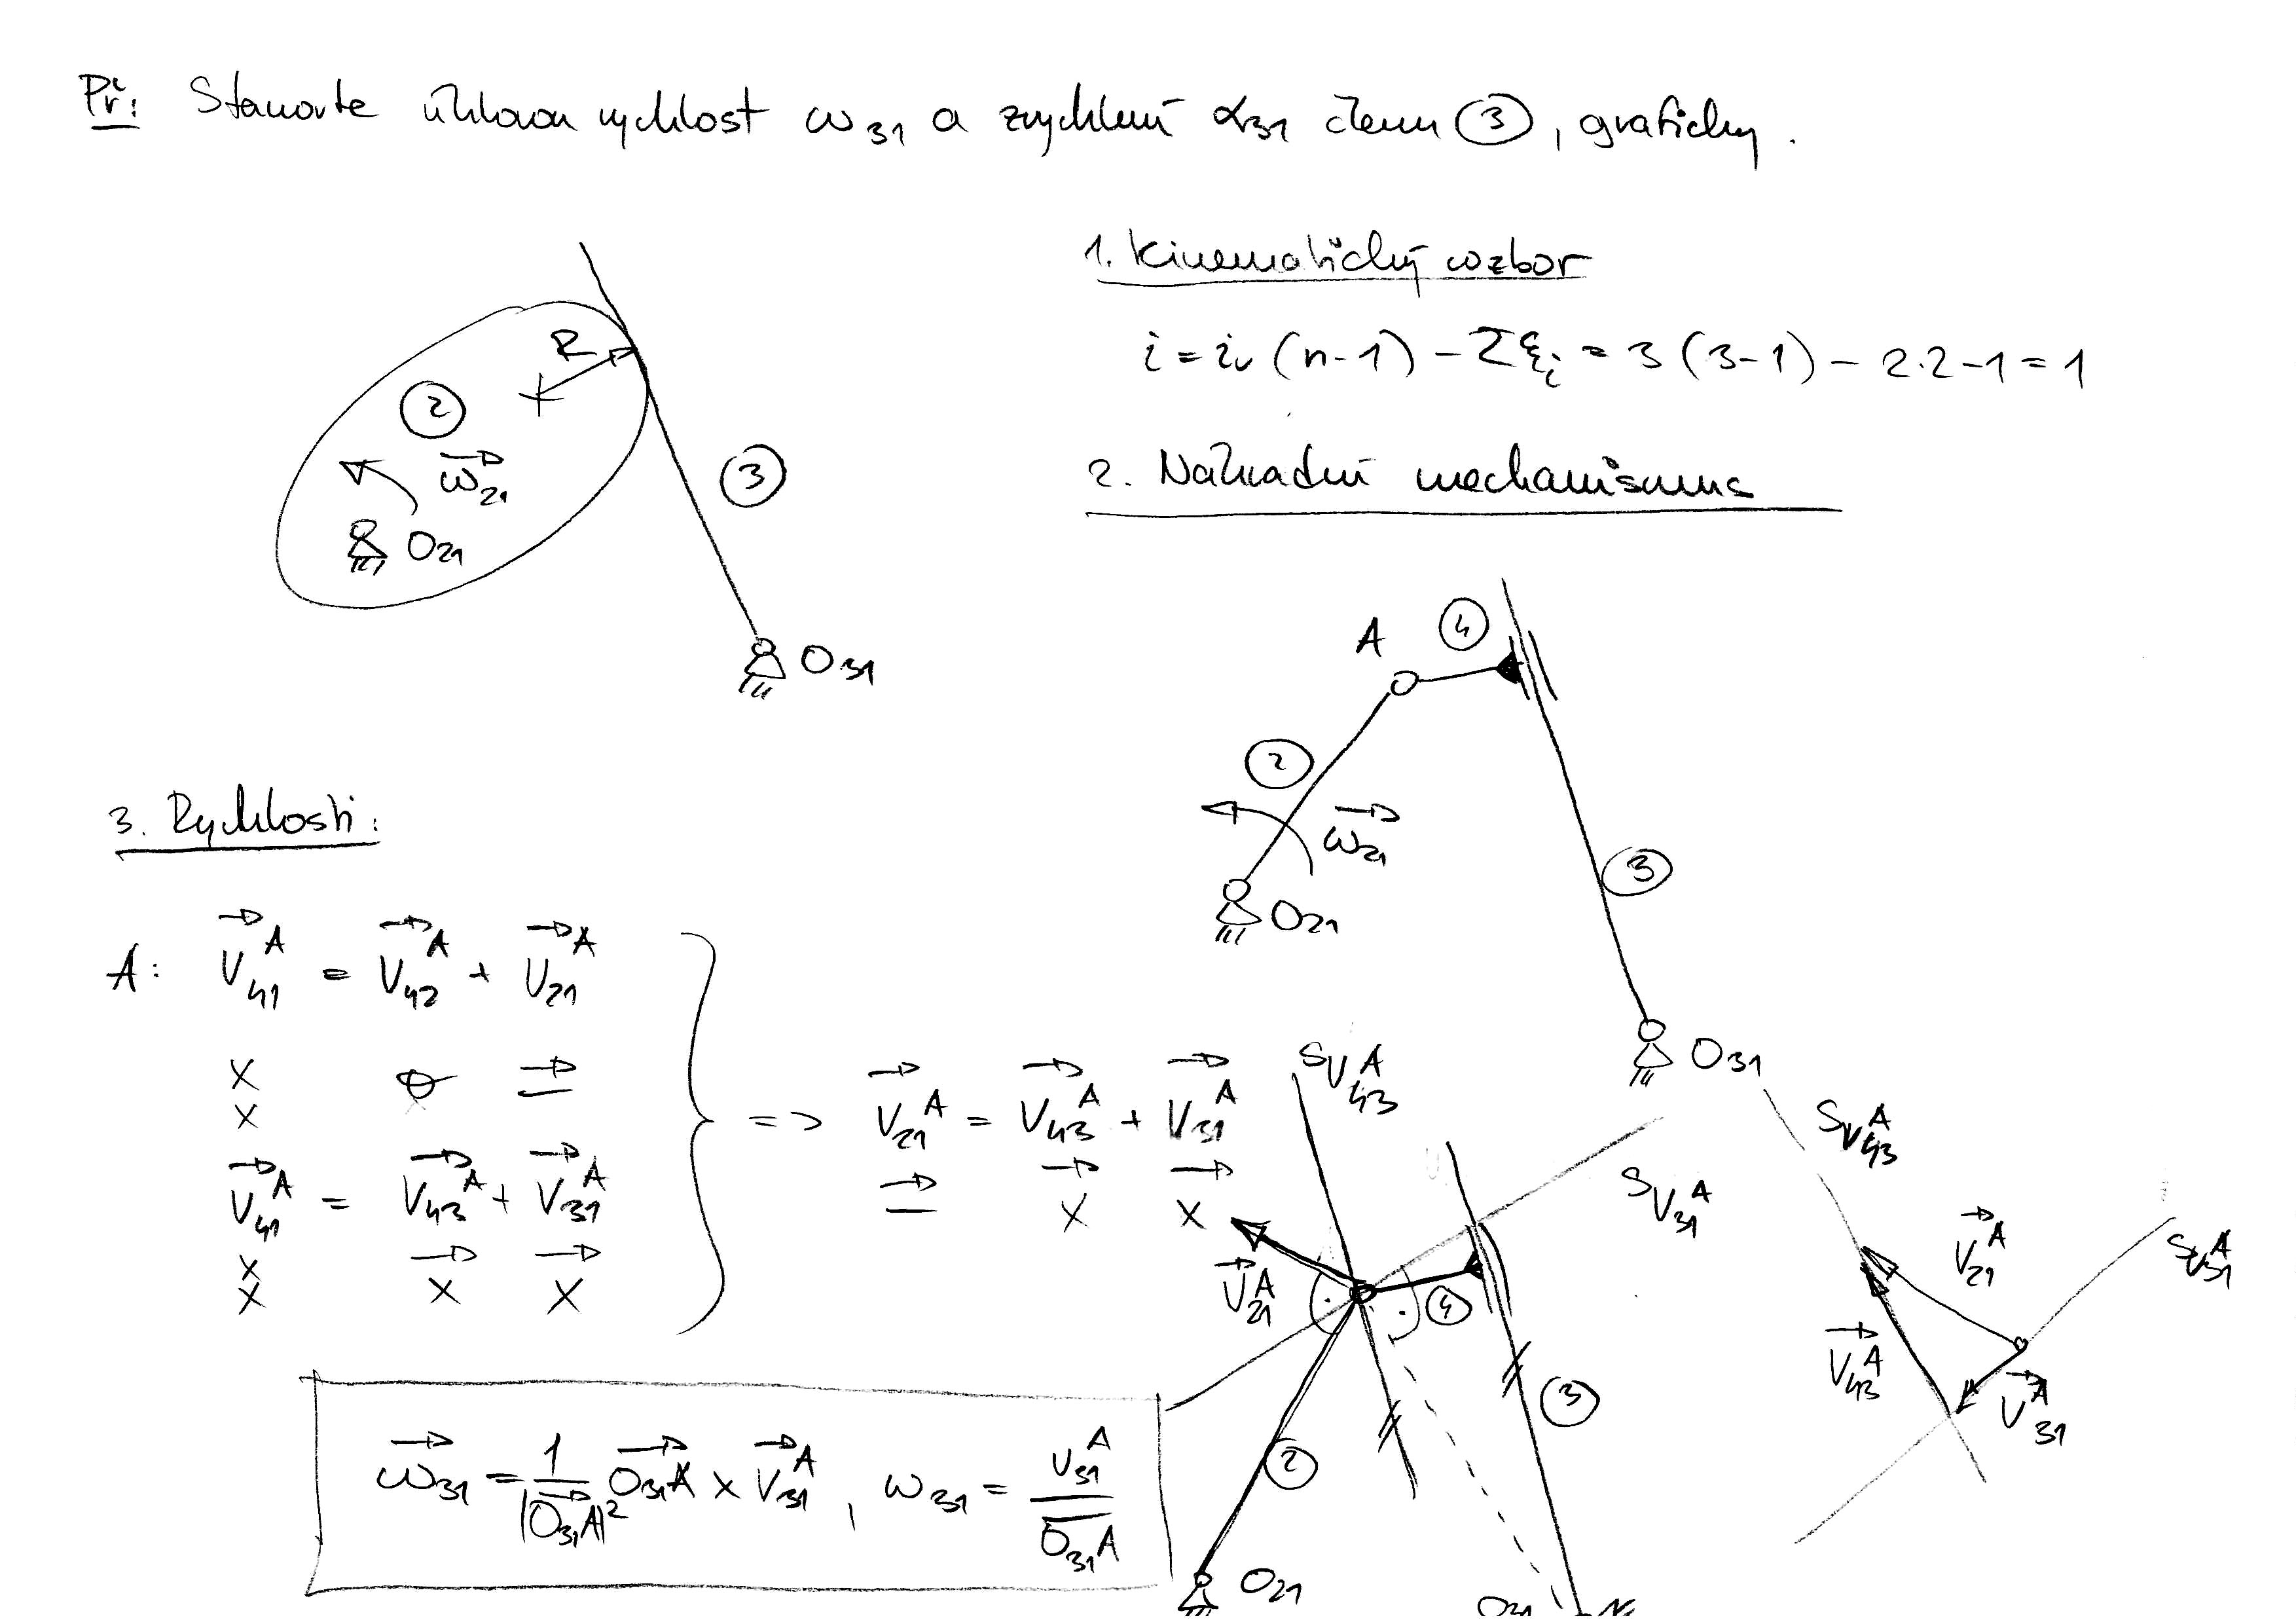 Př: Stanovte úhlovou rychlost ω₃₁ a zrychlení α₃₁ členu ③, graficky.
1. Kinematický rozbor
i = iᵥ (n-1) - Σξᵢ = 3 (3-1) - 2.2-1 = 1
2. Náhradní mechanismus
R
②
ω⃗₂₁
O₂₁
③
O₃₁
A
④
②
ω⃗₂₁
O₂₁
③
O₃₁
3. Rychlosti:
A: v⃗₄₁ᴬ = v⃗₄₂ᴬ + v⃗₂₁ᴬ
v⃗₄₁ᴬ = v⃗₄₃ᴬ + v⃗₃₁ᴬ
=> v⃗₂₁ᴬ = v⃗₄₃ᴬ + v⃗₃₁ᴬ
x x
s v₄₃ᴬ
s v₃₁ᴬ
v⃗₂₁ᴬ
④
③
②
O₂₁
O₃₁
s v₄₃ᴬ
v⃗₂₁ᴬ
s v₃₁ᴬ
v⃗₄₃ᴬ
v⃗₃₁ᴬ
ω⃗₃₁ = 1/|O₃₁A|² O₃₁A × v⃗₃₁ᴬ, ω₃₁ = v₃₁ᴬ / O₃₁A